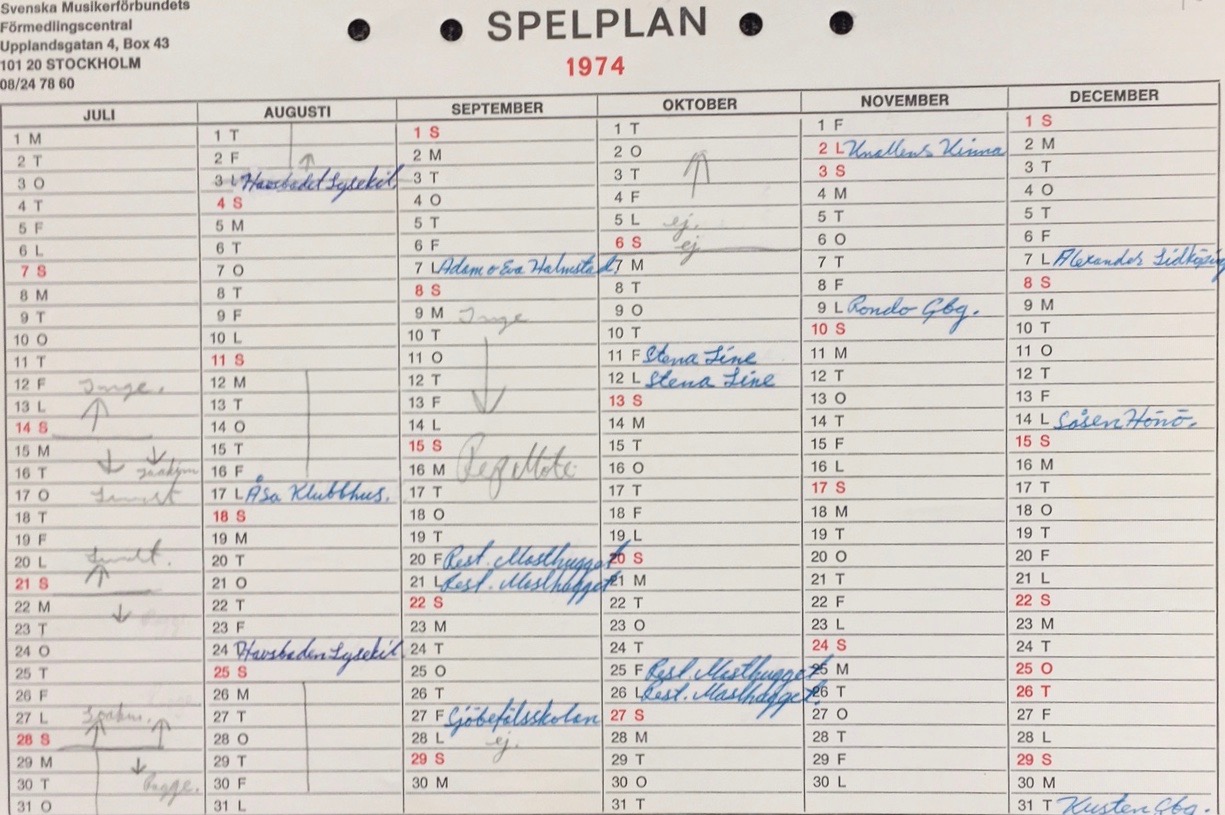 Svenska Musikerförbundets
Förmedlingscentral
Upplandsgatan 4, Box 43
101 20 STOCKHOLM
08/24 78 60
SPELPLAN
1974
JULI
1 M
2 T
3 O
4 T
5 F
6 L
7 S
8 M
9 T
10 O
11 T
12 F Inge.
13 L
14 S
15 M
16 T Joakim
17 O
18 T
19 F
20 L
21 S
22 M
23 T
24 O
25 T
26 F
27 L
28 S
29 M
30 T
31 O
AUGUSTI
1 T
2 F
3 L Havsbadet Lysekil
4 S
5 M
6 T
7 O
8 T
9 F
10 L
11 S
12 M
13 T
14 O
15 T
16 F
17 L Åsa Klubbhus.
18 S
19 M
20 T
21 O
22 T
23 F
24 Havsbaden Lysekil
25 S
26 M
27 T
28 O
29 T
30 F
31 L
SEPTEMBER
1 S
2 M
3 T
4 O
5 T
6 F
7 L Adam o Eva Halmstad
8 S
9 M Inge
10 T
11 O
12 T
13 F
14 L
15 S
16 M
17 T
18 O
19 T
20 F Rest. Masthugget
21 L Rest. Masthugget
22 S
23 M
24 T
25 O
26 T
27 F Sjöbefälsskolan
28 L ej.
29 S
30 M
OKTOBER
1 T
2 O
3 T
4 F
5 L ej.
6 S ej
7 M
8 T
9 O
10 T
11 F Stena Line
12 L Stena Line
13 S
14 M
15 T
16 O
17 T
18 F
19 L
20 S
21 M
22 T
23 O
24 T
25 F Rest. Masthugget
26 L Rest. Masthugget.
27 S
28 M
29 T
30 O
31 T
NOVEMBER
1 F
2 L Knallens Kinna
3 S
4 M
5 T
6 O
7 T
8 F
9 L Rondo Gbg.
10 S
11 M
12 T
13 O
14 T
15 F
16 L
17 S
18 M
19 T
20 O
21 T
22 F
23 L
24 S
25 M
26 T
27 O
28 T
29 F
30 L
DECEMBER
1 S
2 M
3 T
4 O
5 T
6 F
7 L Alexander Lidköping
8 S
9 M
10 T
11 O
12 T
13 F
14 L Såsen Hönö.
15 S
16 M
17 T
18 O
19 T
20 F
21 L
22 S
23 M
24 T
25 O
26 T
27 F
28 L
29 S
30 M
31 T Kusten Gbg.